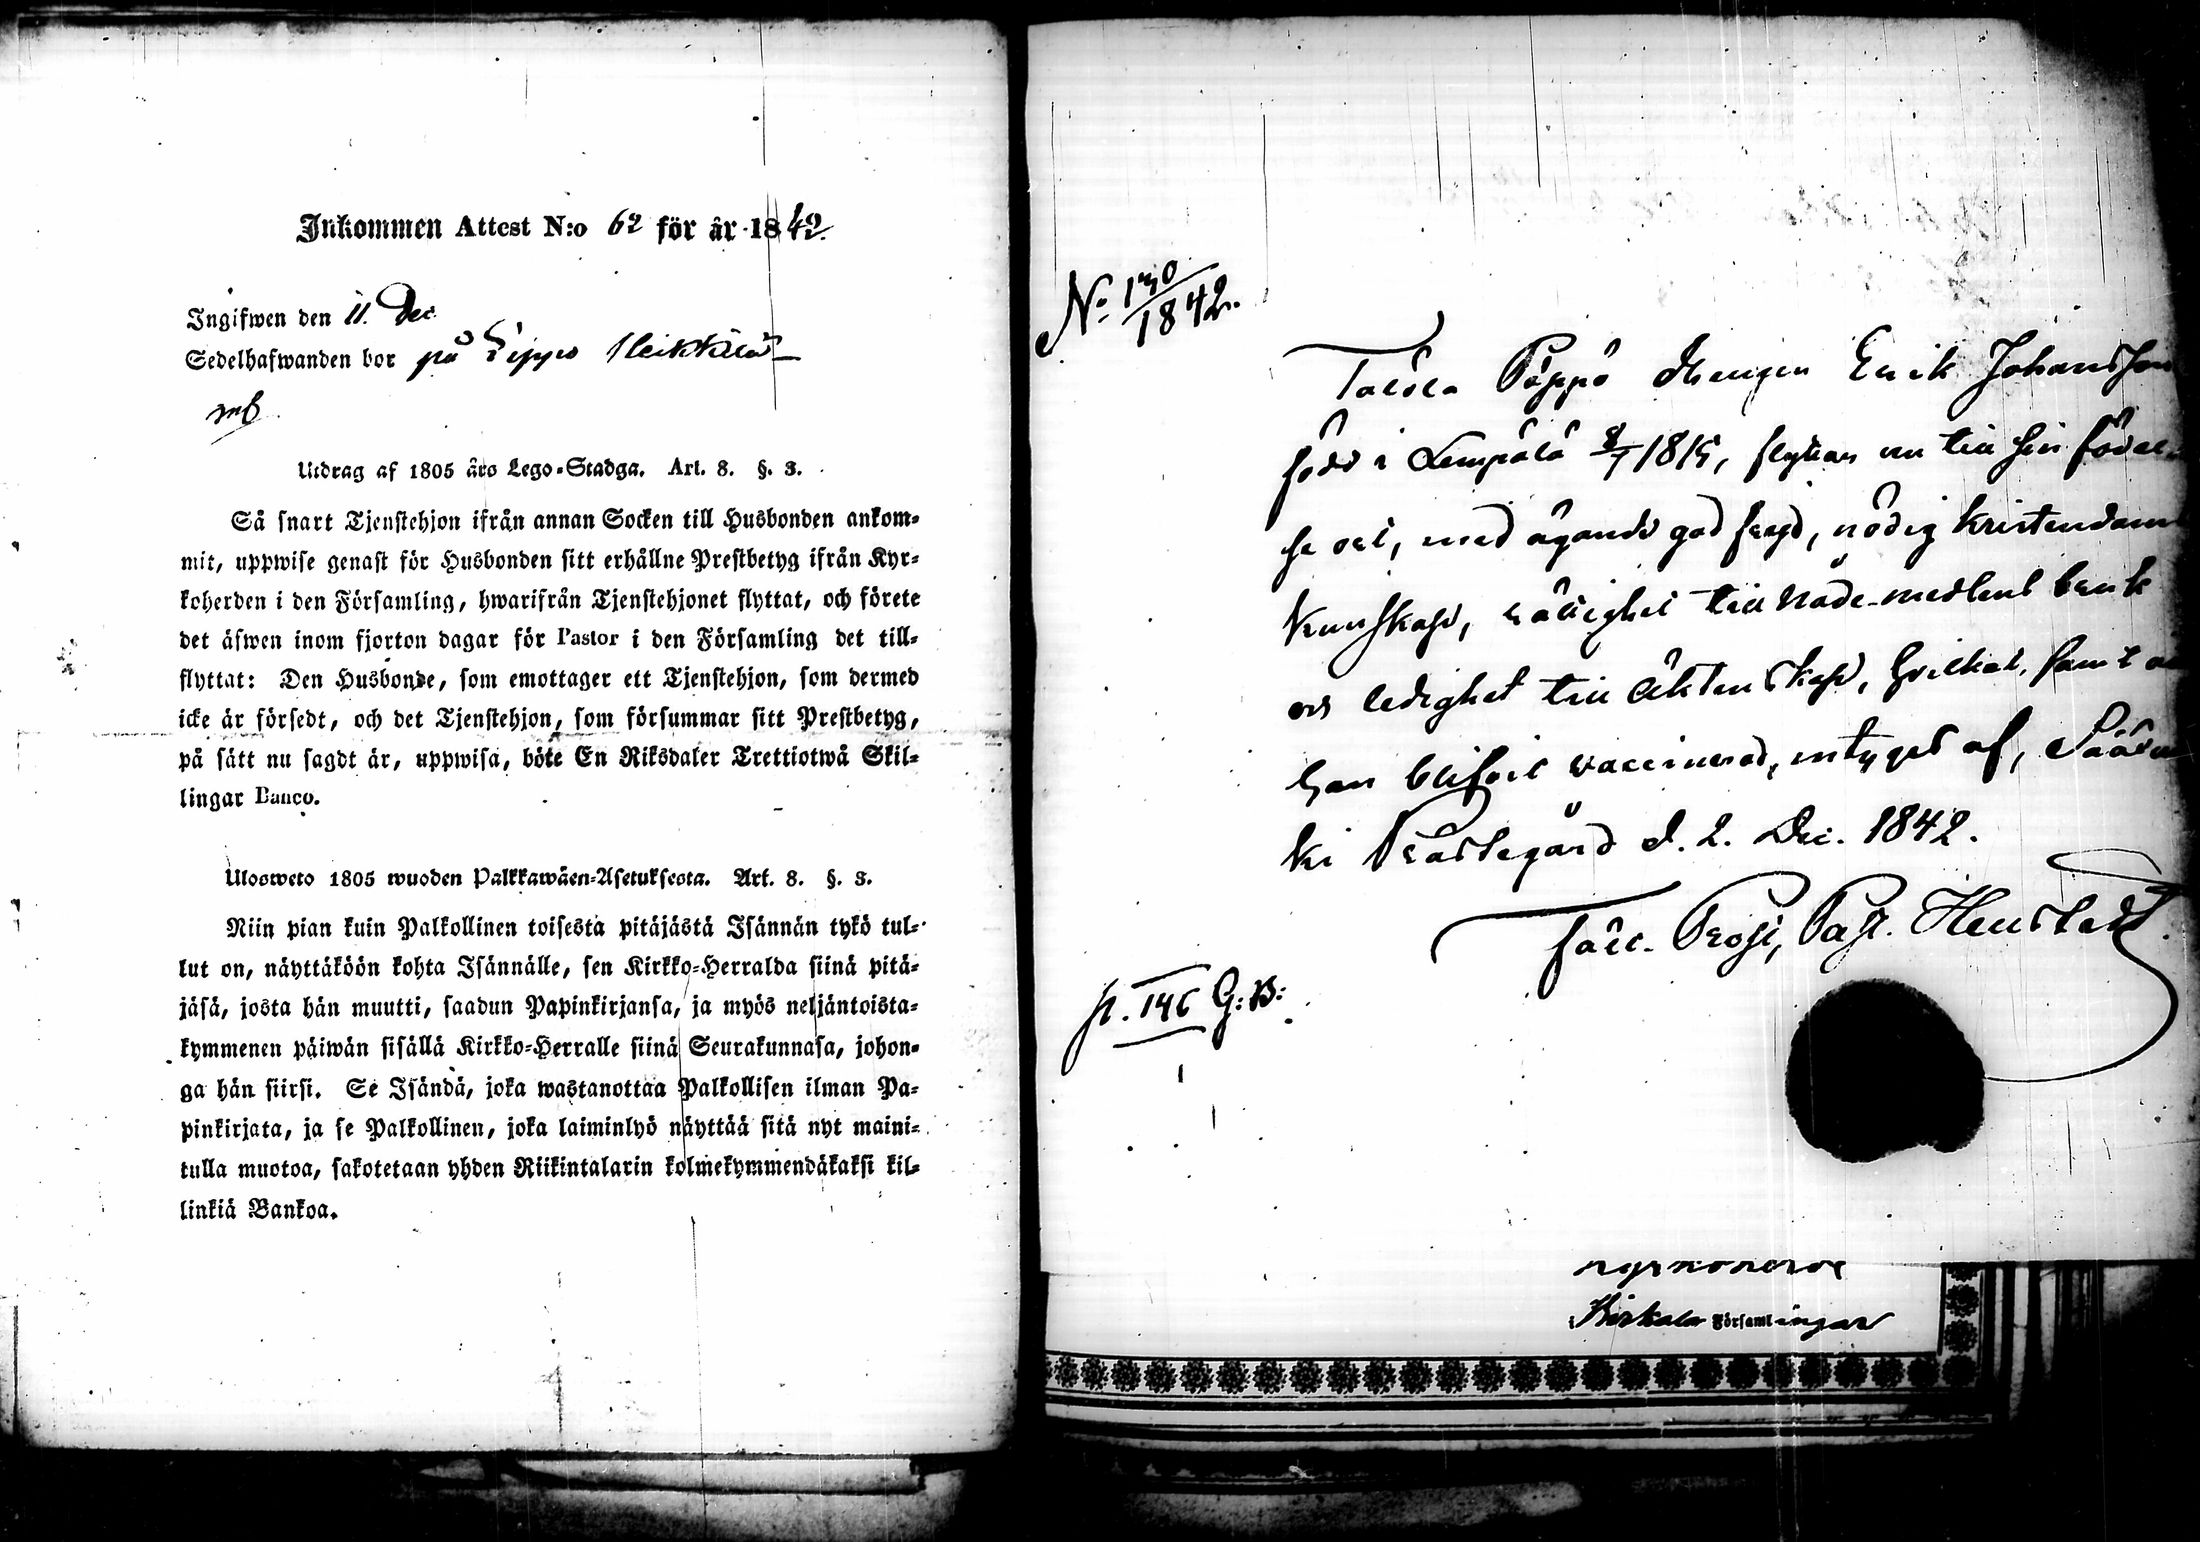 Inkommen Attest N:o 62 för år 1842.
Ingifwen den 11. Dec.
Sedelhafwanden bor på Heikkilä
Utdrag af 1805 års Lego-Stadga. Art. 8. §. 3.
Så snart Tjenstehjon ifrån annan Socken till Husbonden ankom-
mit, uppwise genast för Husbonden sitt erhållne Prestbetyg ifrån Kyr-
koherden i den Församling, hwarifrån Tjenstehjonet flyttat, och förete
det äfwen inom fjorton dagar för Pastor i den Församling det till-
flyttat: Den Husbonde, som emottager ett Tjenstehjon, som dermed
icke är försedt, och det Tjenstehjon, som försummar sitt Prestbetyg,
på sätt nu sagdt är, uppwisa, böte En Riksdaler Trettiotwå Skil-
lingar Banco.
Ulosweto 1805 wuoden Palkkawäen-Asetuksesta. Art. 8. §. 3.
Niin pian kuin Palkollinen toisesta pitäjästä Isännän tykö tul-
lut on, näyttäköön kohta Isännälle, sen Kirkko-Herralda siinä pitä-
jäsä, josta hän muutti, saadun Papinkirjansa, ja myös neljäntoista-
kymmenen päiwän sisällä Kirkko-Herralle siinä Seurakunnasa, johon-
ga hän siirsi. Se Isändä, joka wastanottaa Palkollisen ilman Pa-
pinkirjata, ja se Palkollinen, joka laiminlyö näyttää sitä nyt maini-
tulla muotoa, sakotetaan yhden Riikintalarin kolmekymmendäkaksi kil-
linkiä Bankoa.
No 130/1842.
Talola Pöppö drengen Erik Johansson
född i Lempälä 8/7 1815, flyttar nu till sin födel-
se ort, med ägande god frejd, nödig kristendoms
kunskap, rättighet till Nådemedlens bruk
och ledighet till äktenskap, hvilket, samt att
han blifvit vaccinerad, intygas af, Sääks-
ki Prästegård d. 2. Dec. 1842.
Past.
p. 146 G:B:
Kyrkoherde
i Birkala Församlingar